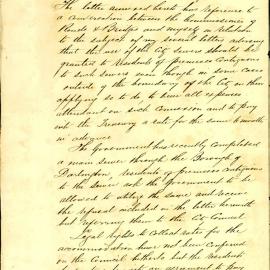 The letter annexed hereto has reference to
a conversation between the Commissioner of
Roads & Bridges and myself in relation
to the subject of my several letters advising
that the use of the City Sewers should be
granted to residents of premises contiguous
to such sewers even though in some cases
outside of the boundary of the City on them
applying so to do & bear all expenses
attendant on such Concession and to pay
into the Treasury a rate for the same 6 months
in advance
The Government has recently completed
a main sewer through the Borough of
Darlington, residents of premises contiguous
to the Sewer ask the government to be
allowed to utilize the Sewer and receive
the refusal included in the letter herewith
but referring them to the City Council
Legal rights to Collect rates for the
accommodation have not been conferred
on the Council hitherto but the residents